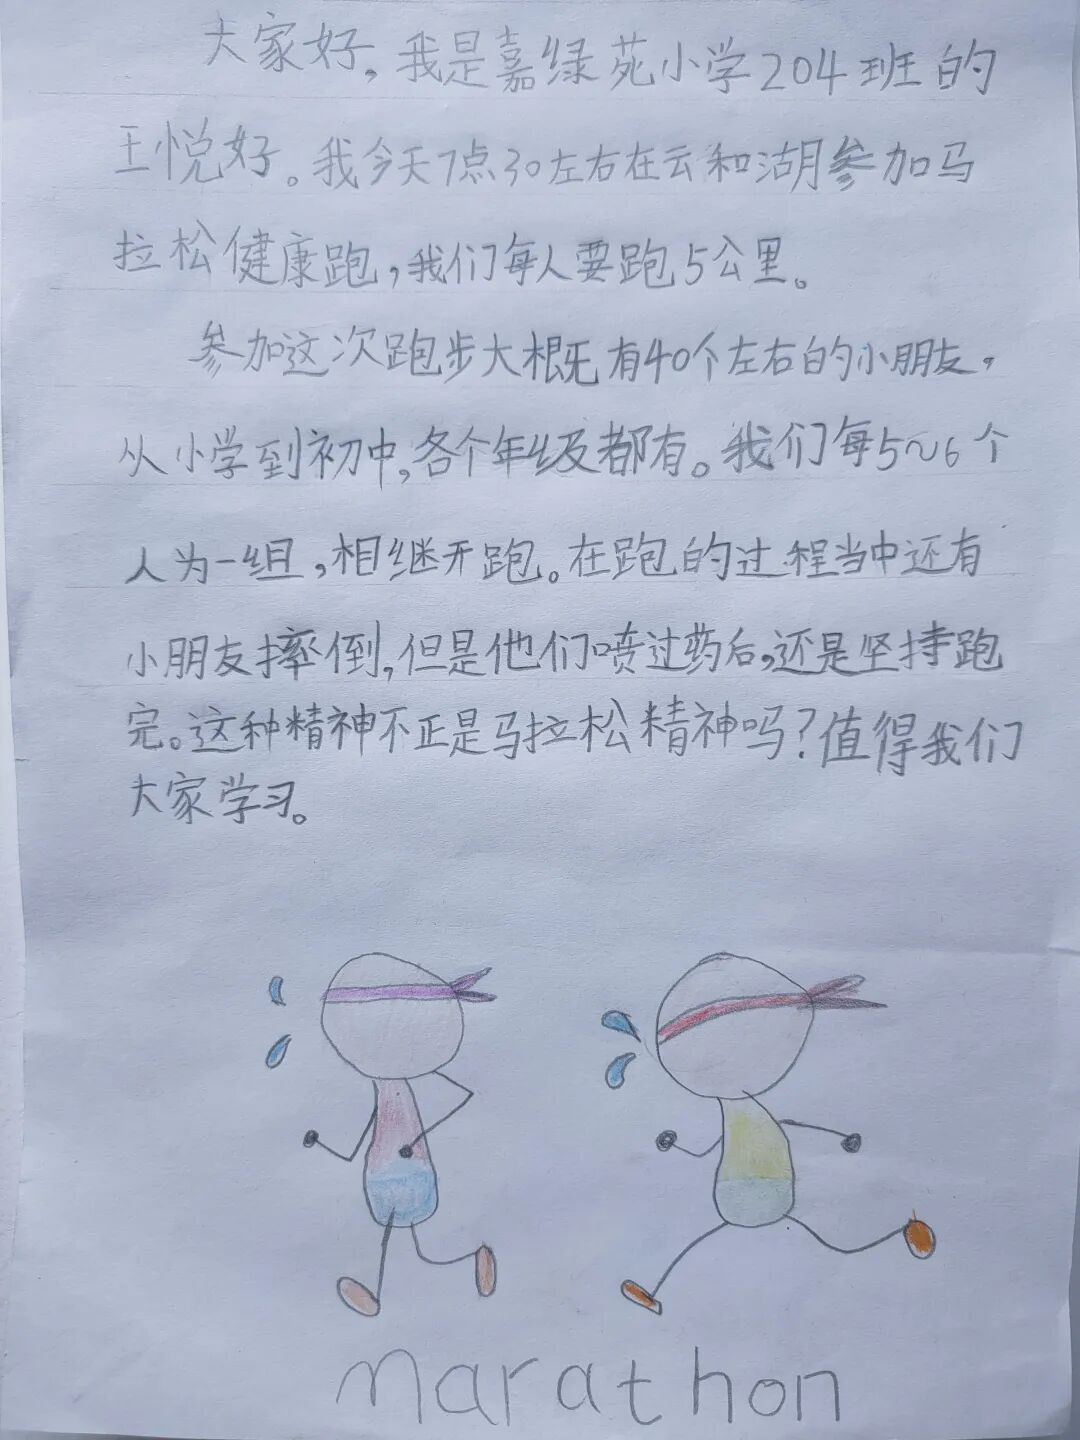 大家好，我是嘉绿苑小学204班的
王悦好。我今天7点30左右在云和湖参加马
拉松健康跑，我们每人要跑5公里。
参加这次跑步大概有40个左右的小朋友，
从小学到初中，各个年级都有。我们每5~6个
人为一组，相继开跑。在跑的过程当中还有
小朋友摔倒，但是他们喷过药后，还是坚持跑
完。这种精神不正是马拉松精神吗？值得我们
大家学习。
marathon